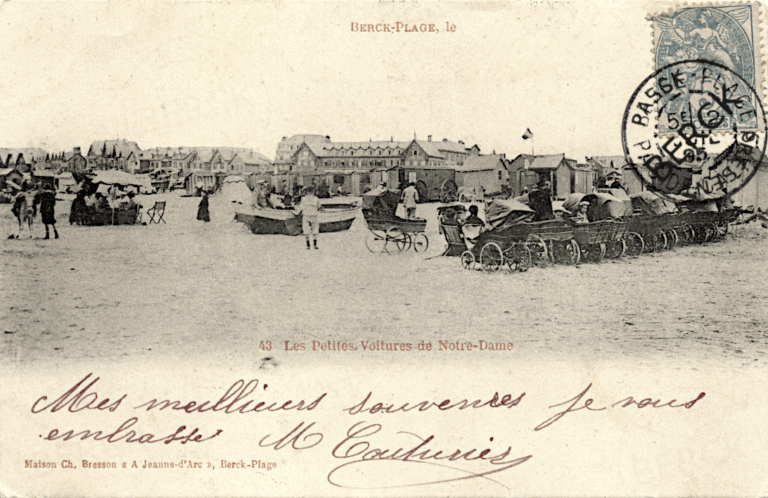 BERCK-PLAGE, le
43 Les Petites Voitures de Notre-Dame
Mes meilleurs souvenirs je vous
embrasse M Couturier
Maison Ch. Bresson « A Jeanne-d'Arc », Berck-Plage